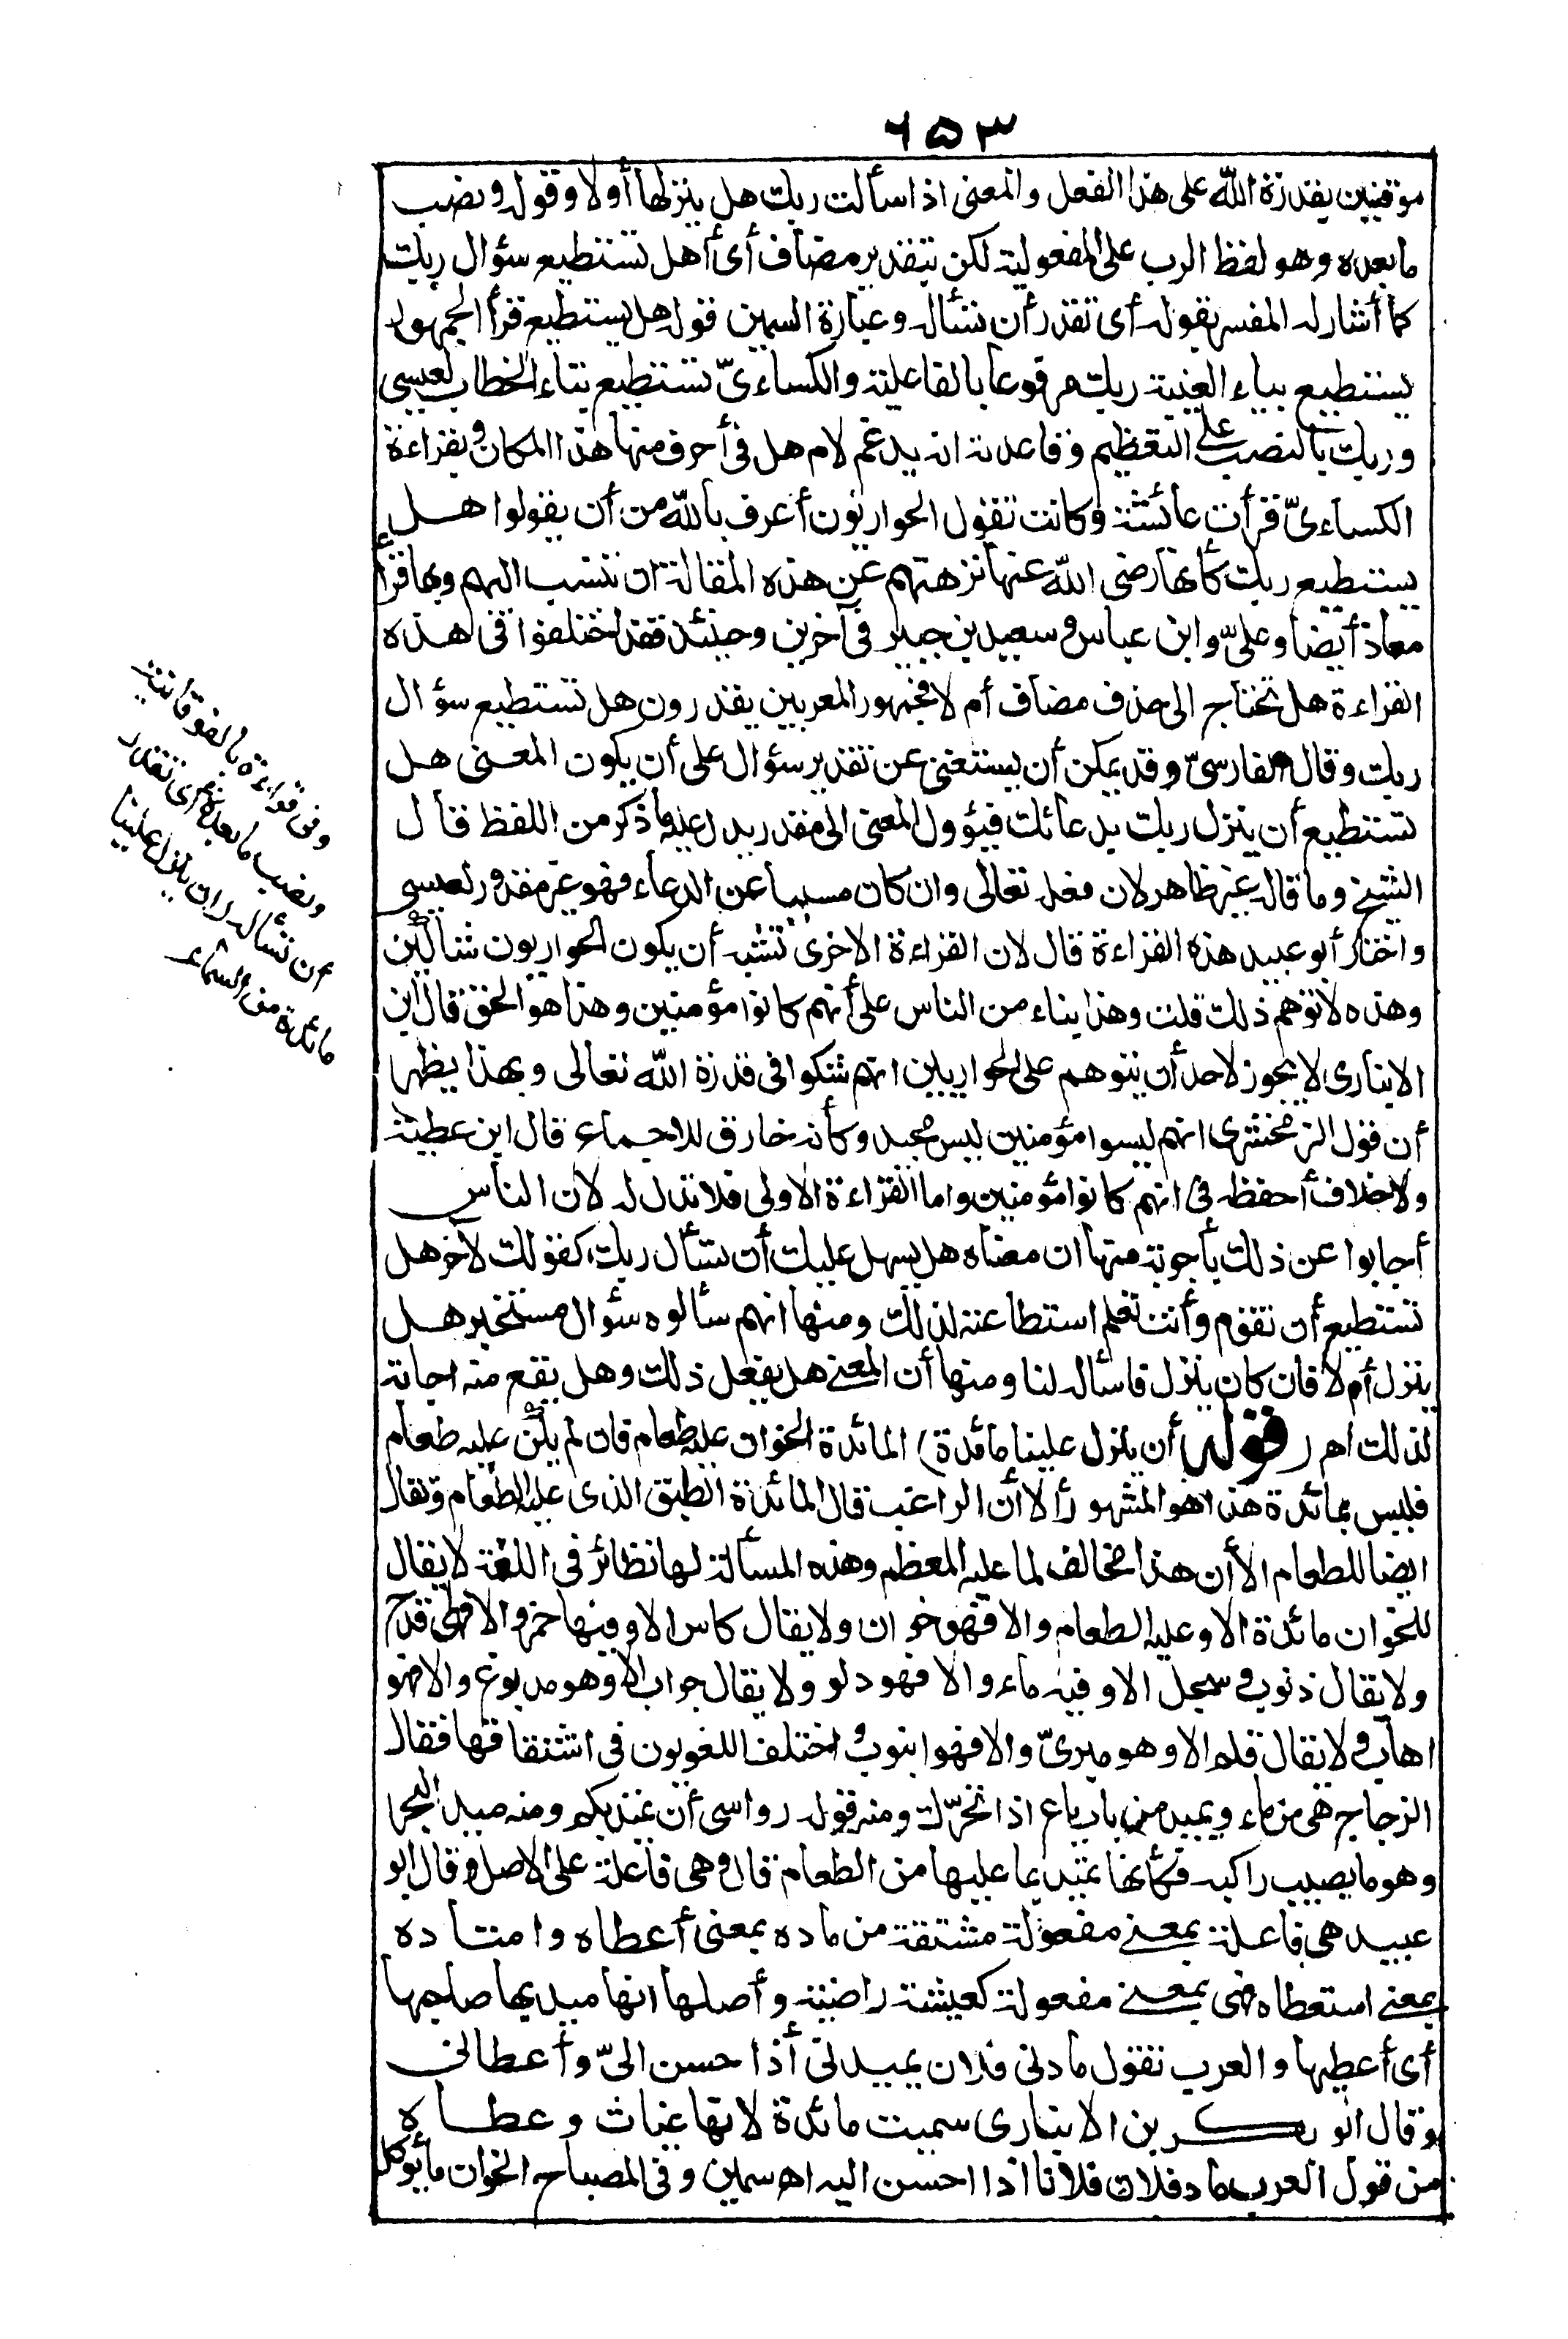 ٦٥٣
موقنين بقدرة الله على هذا الفعل والمعنى اذا سألت ربك هل ينزلها أولا وقوله ونصب
ما بعده وهو لفظ الرب على المفعولية لكن بتقدير مضاف أى أهل تستطيع سؤال ربك
كما أشار له المفسر بقوله أى تقدر أن تسأله وعبارة السمين قوله هل يستطيع قرأ الجمهور
يستطيع بياء الغيبة ربك مرفوعا بالفاعلية والكساءىّ تستطيع بتاء الخطاب لعيسى
وربك بالنصب على التعظيم وقاعدته انه يدغم لام هل فى أحرف منها هذا المكان وبقراءة
الكساءىّ قرأت عائشة وكانت تقول الحواريون أعرف بالله من أن يقولوا هل
يستطيع ربك كأنها رضى الله عنها نزهتهم عن هذه المقالة ان تنسب اليهم وبها قرأ
معاذ أيضا وعلىّ وابن عباس وسعيد بن جبير فى آخرين وحينئذ فقد اختلفوا فى هذه
القراءة هل تحتاج الى حذف مضاف أم لا فجمهور المعربين يقدرون هل تستطيع سؤال
ربك وقال الفارسىّ وقد يمكن أن يستغنى عن تقدير سؤال على أن يكون المعنى هل
تستطيع أن ينزل ربك بدعائك فيؤول المعنى الى مقدر يدل عليه ما ذكر من اللفظ قال
الشيخ وما قاله غير ظاهر لان فعله تعالى وان كان مسببا عن الدعاء فهو غير مقدور لعيسى
واختار أبو عبيد هذه القراءة قال لان القراءة الاخرى تشبه أن يكون الحواريون شاكّين
وهذه لا توهم ذلك قلت وهذا بناء من الناس على أنهم كانوا مؤمنين وهذا هو الحق قال ابن
الانبارى لا يجوز لاحد أن يتوهم على الحواريين انهم شكوا فى قدرة الله تعالى وبهذا يظهر
أن قول الزمخشرى انهم ليسوا مؤمنين ليس بجيد وكأنه خارق للاجماع قال ابن عطية
ولا خلاف أحفظه فى انهم كانوا مؤمنين واما القراءة الاولى فلا تدل له لان الناس
أجابوا عن ذلك بأجوبة منها ان معناه هل يسهل عليك أن تسأل ربك كقولك لآخر هل
تستطيع أن تقوم وأنت تعلم استطاعته لذلك ومنها انهم سألوه سؤال مستخبر هل
ينزل أم لا فان كان ينزل فاسأله لنا ومنها أن المعنى هل يفعل ذلك وهل يقع منه اجابة
لذلك اهـ (قوله أن ينزل علينا مائدة) المائدة الخوان عليه طعام فان لم يكن عليه طعام
فليس بمائدة هذا هو المشهور الا أن الراغب قال المائدة الطبق الذى عليه الطعام وتقال
ايضا للطعام الا أن هذا مخالف لما عليه المعظم وهذه المسألة لها نظائر فى اللغة لا يقال
للخوان مائدة الا وعليه الطعام والا فهو خوان ولا يقال كاس الا وفيها خمر والا فهى قدح
ولا يقال ذنوب وسجل الا وفيه ماء والا فهو دلو ولا يقال جراب الا وهو مدبوغ والا فهو
اهاب ولا يقال قلم الا وهو مبرىّ والا فهو انبوب واختلف اللغويون فى اشتقاقها فقال
الزجاج هى من ماد يميد من باب باع اذا تحرّك ومنه قوله رواسى أن تميد بكم ومنه ميد البحر
وهو ما يصيب راكبه فكأنها تميد بما عليها من الطعام قال وهى فاعلة على الاصل وقال ابو
عبيد هى فاعلة بمعنى مفعولة مشتقة من ماده بمعنى أعطاه وامتاده
بمعنى استعطاه فهى بمعنى مفعولة كعيشة راضية وأصلها انها ميد بها صاحبها
أى أعطيها والعرب تقول مادنى فلان يميدنى أذا حسن الىّ وأعطانى
وقال ابو بكر بن الانبارى سميت مائدة لانها غياث وعطاء
من قول العرب ماد فلان فلانا اذا احسن اليه اهـ سمين وفى المصباح الخوان ما يؤكل
وفى قراءة بالفوقانية
ونصب ما بعده أى تقدر
أن تسأله (ان ينزل علينا
مائدة من السماء